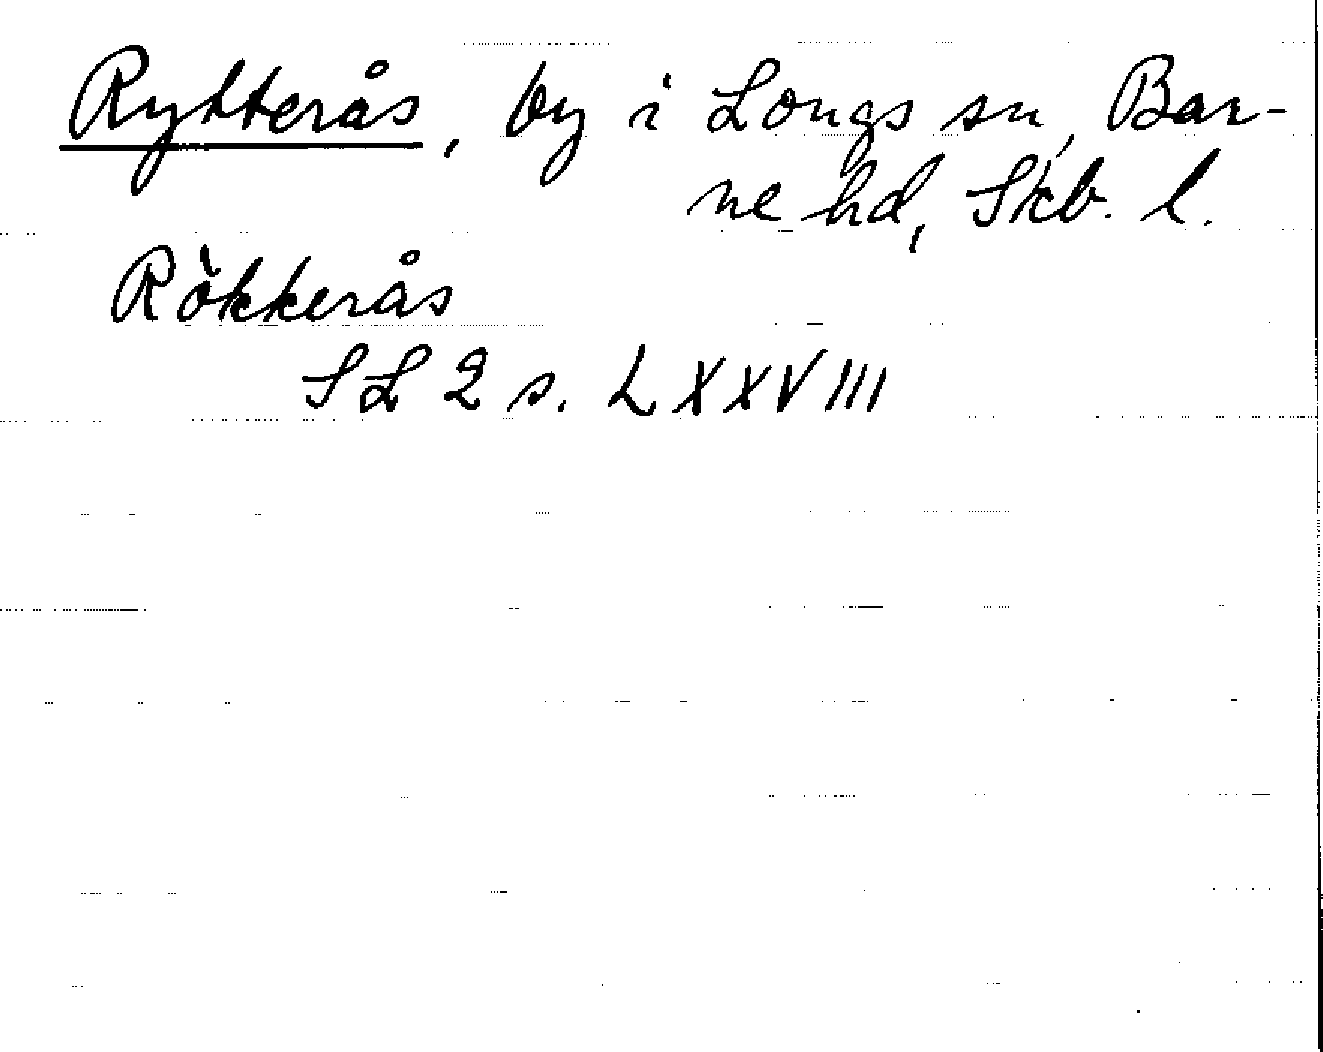 Rytterås, by i Longs sn, Bar-
ne hd, Skb. l.
Rökkerås
SL 2 s. LXXVIII